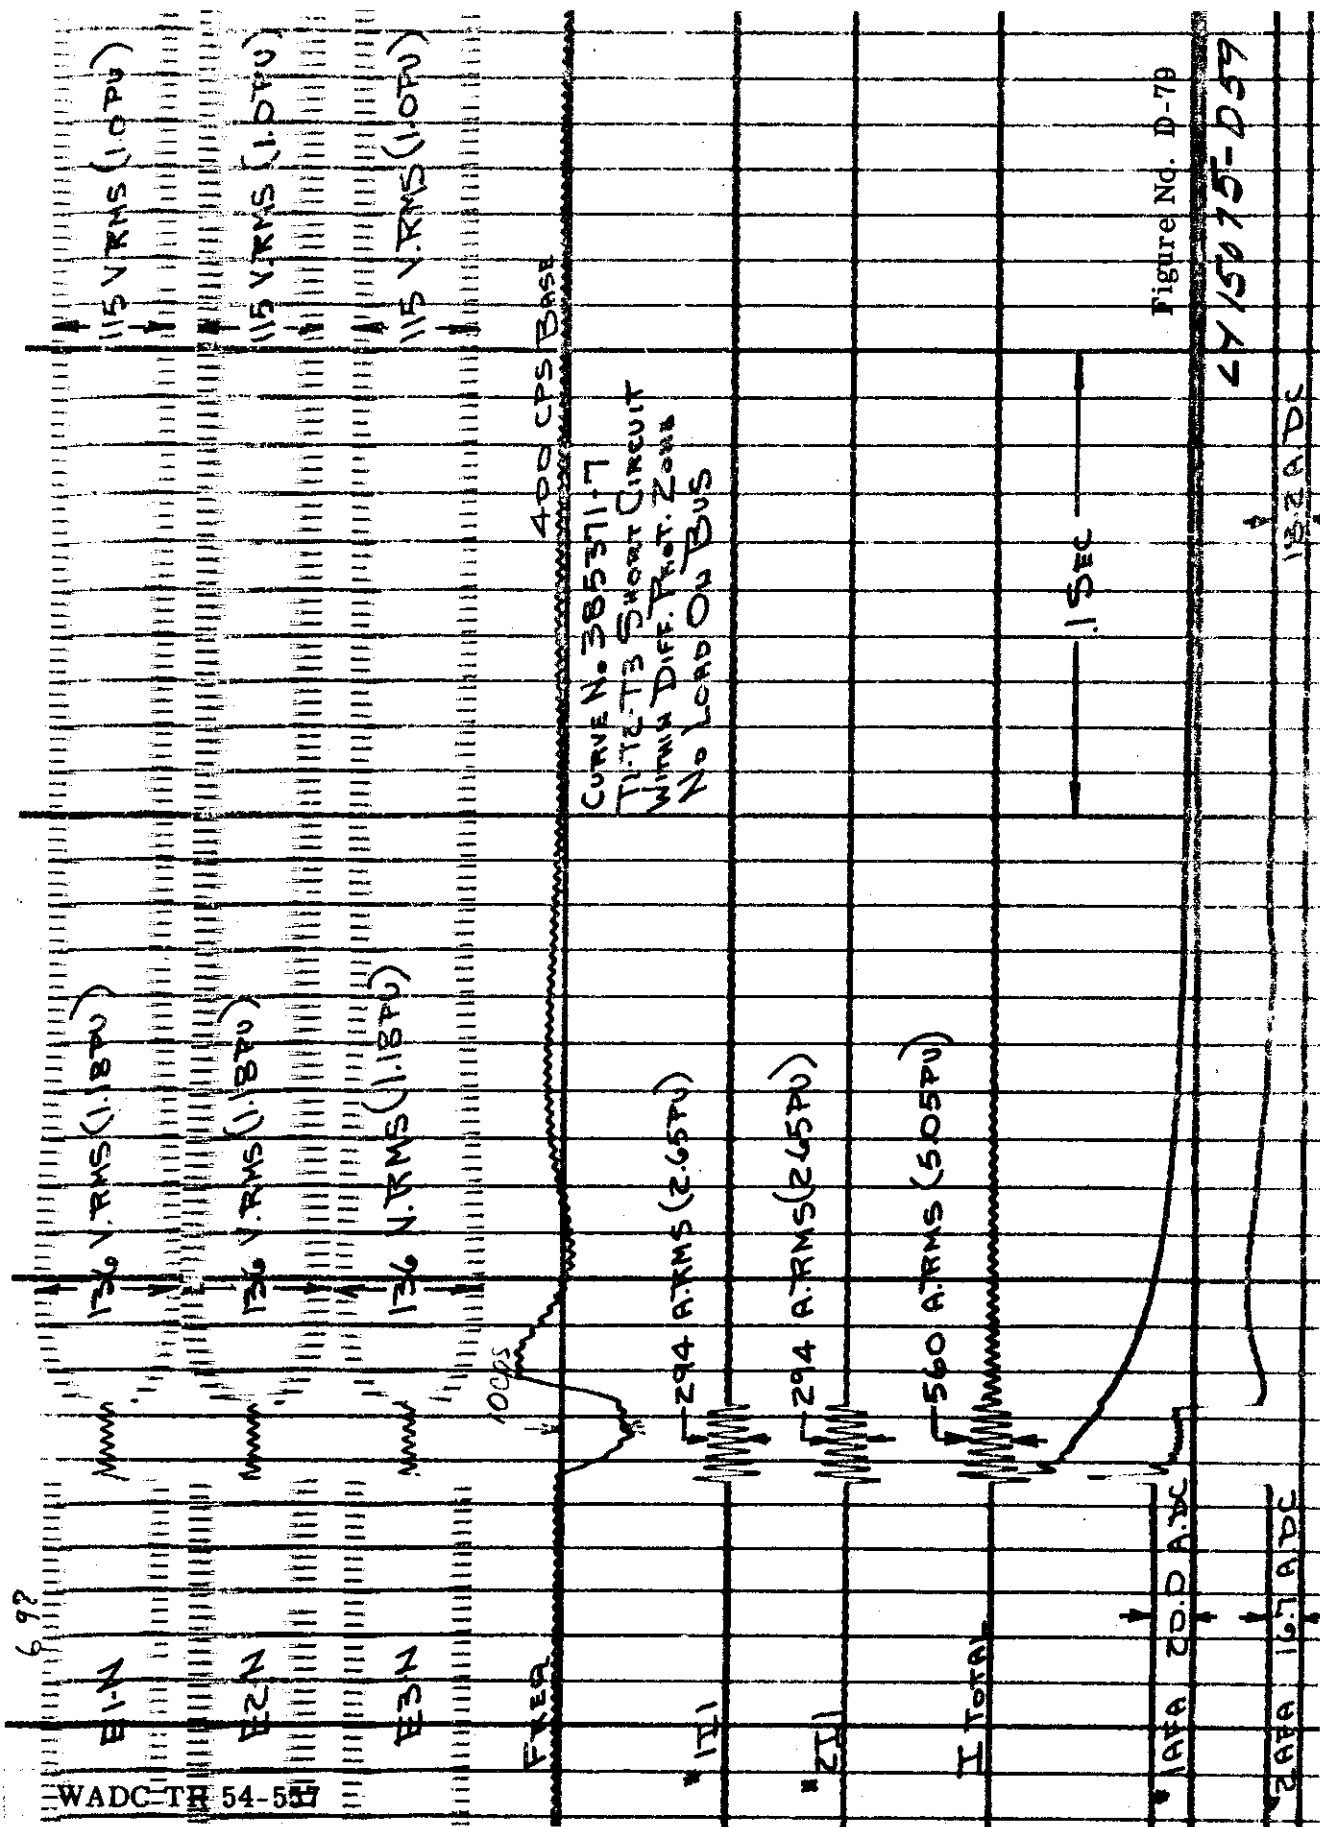 6 98
E1-N
136 V.RMS (1.18PU)
115 V.RMS (1.0PU)
E2-N
136 V.RMS (1.18PU)
115 V.RMS (1.0PU)
E3-N
136 V.RMS (1.18PU)
115 V.RMS (1.0PU)
FREQ
10CPS
400 CPS BASE
CURVE No 385371-7
T1-T2-T3 SHORT CIRCUIT
WITHIN DIFF. PROT. ZONE
NO LOAD ON BUS
*1I1
294 A.RMS (2.65PU)
*2I1
294 A.RMS (2.65PU)
I TOTAL
560 A.RMS (5.05PU)
.1 SEC
*1AFA 20.0 A.DC
*2AFA 16.7 A DC
18.2 A.DC
Figure No. D-79
LY15075-D59
WADC-TR 54-557